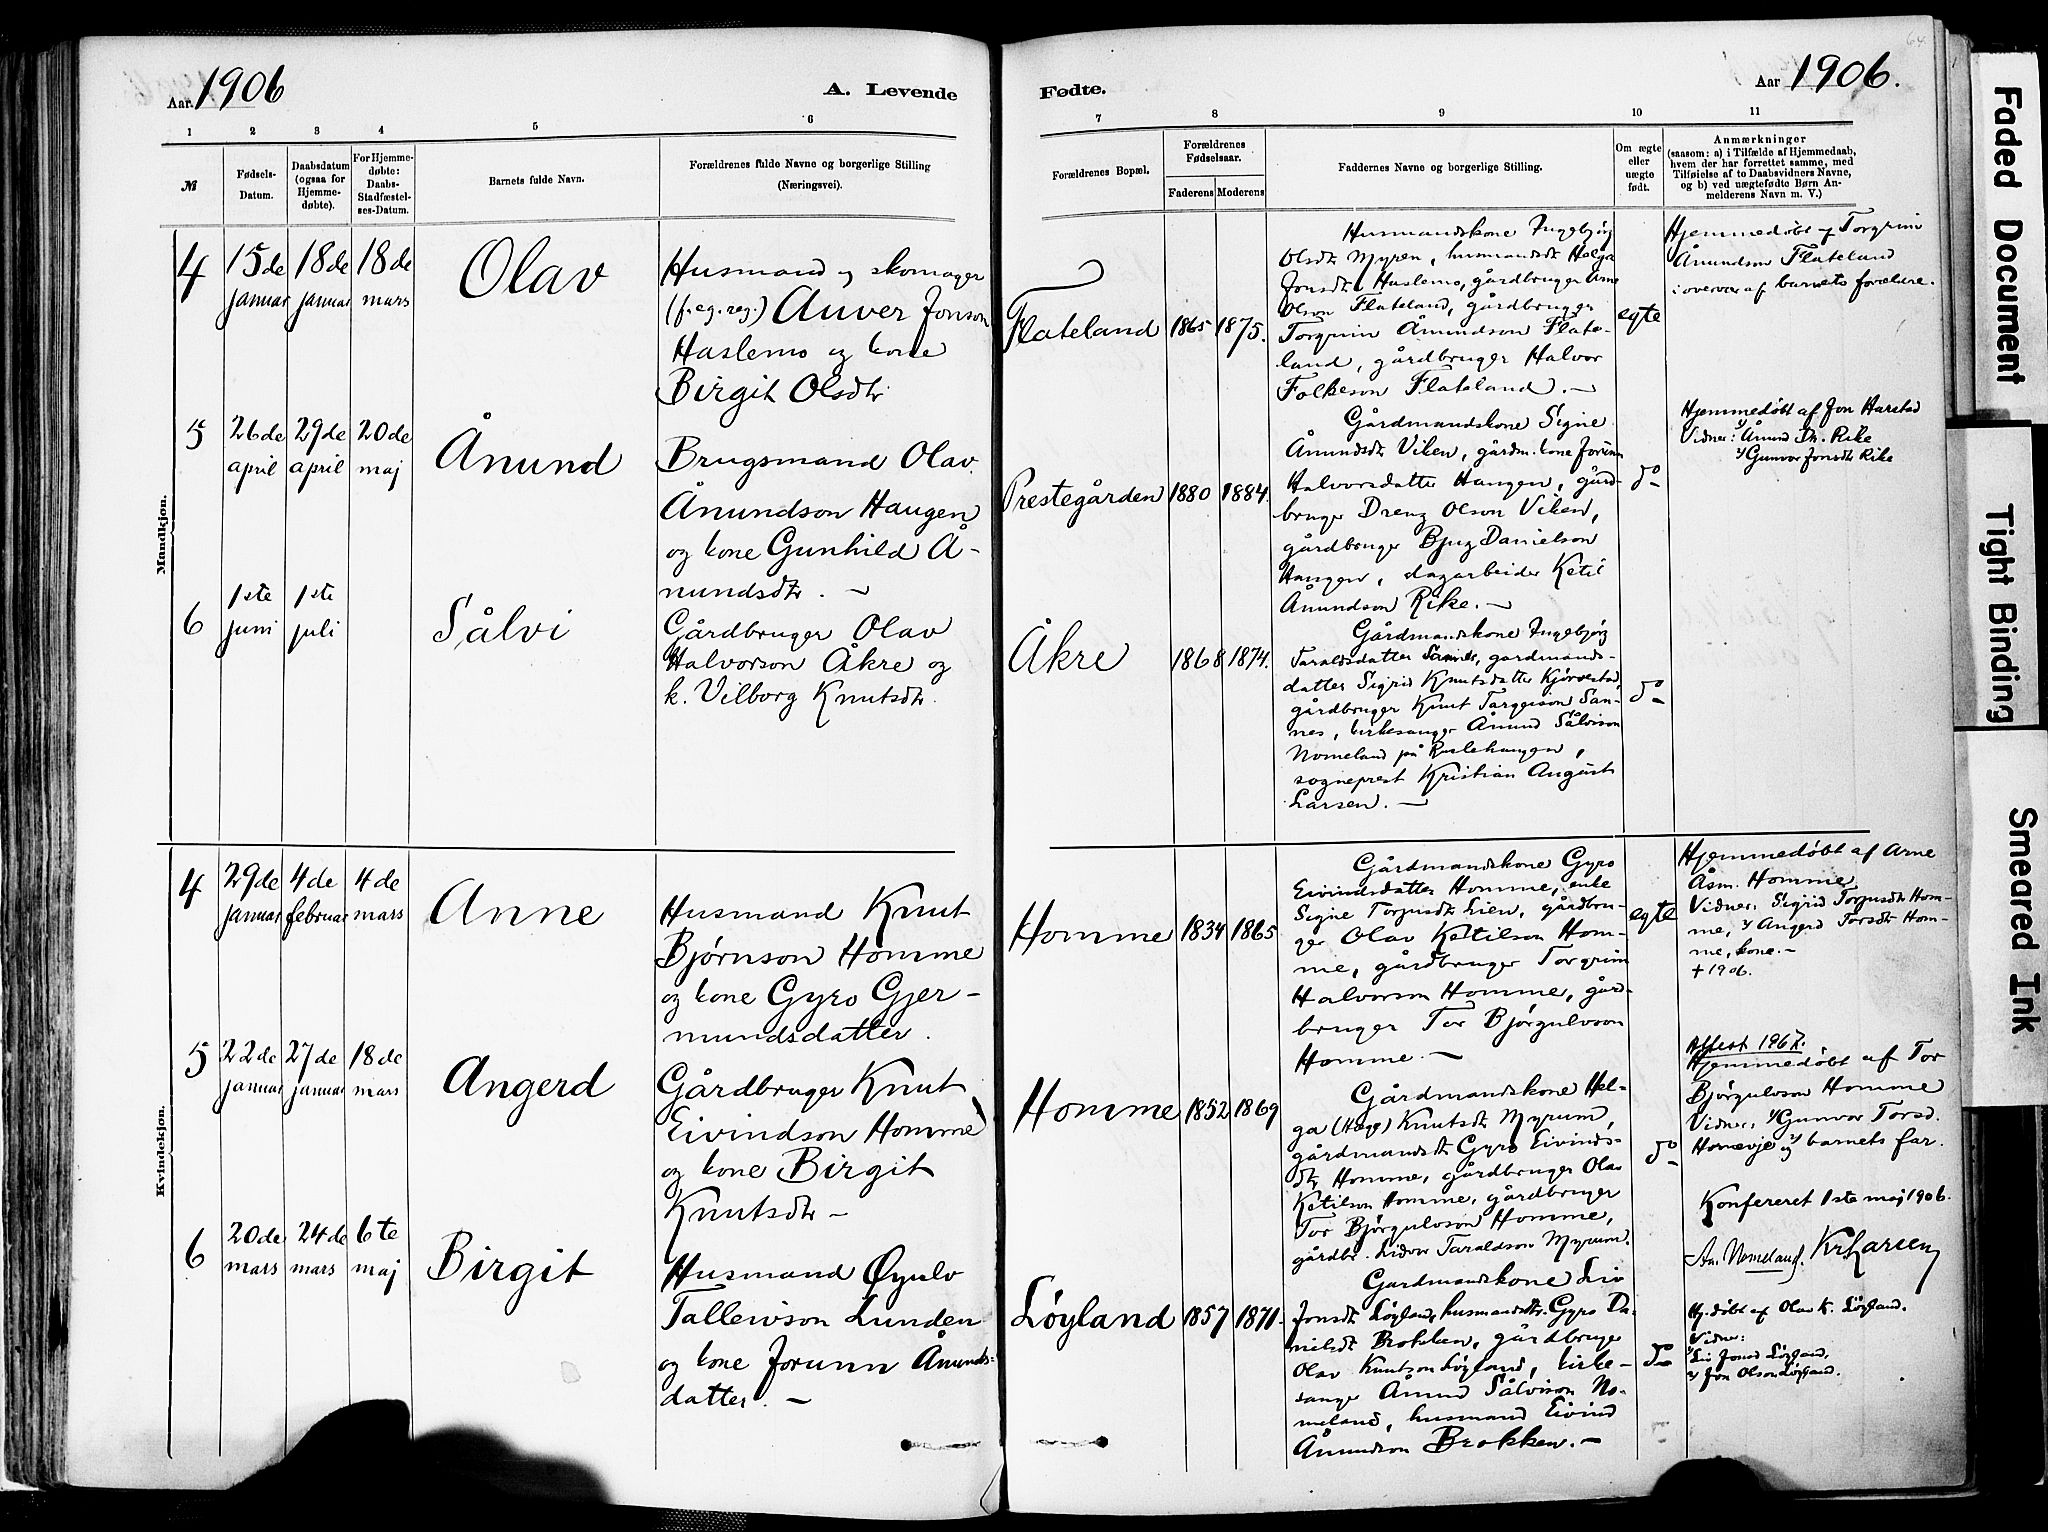 Aar 1906
A. Levende
1 2 3 4 5 6
№
Fødsels-
Datum.
Daabsdatum
(ogsaa for
Hjemme-
døbte).
For Hjemme-
døbte:
Daabs-
Stadfæstel-
ses-Datum.
Barnets fulde Navn.
Forældrenes fulde Navne og borgerlige Stilling
(Næringsvei).
Mandkjøn.
4
15de
januar
18de
januar
18de
mars
Olav
Husmand og skomager
(f.eg.reg.) Auver Jonson
Haslemo og kone
Birgit Olsdtr
5
26de
april
29de
april
20de
maj
Ånund
Brugsmand Olav
Ånundson Haugen
og kone Gunhild Å-
nundsdtr. —
6
1ste
juni
1ste
juli
Sålvi
Gårdbruger Olav
Halvorson Åkre og
k. Vilborg Knutsdtr.
Kvindekjøn.
4
29de
januar
4de
februar
4de
mars
Anne
Husmand Knut
Bjørnson Homme
og kone Gyro Gjer-
mundsdatter.
5
22de
januar
27de
januar
18de
mars
Angerd
Gårdbruger Knut
Eivindson Homme
og kone Birgit
Knutsdtr —
6
20de
mars
24de
mars
6te
maj
Birgit
Husmand Øyulv
Tallevson Lunden
og kone Jorunn Ånunds-
datter. —
64
Fødte.
Aar 1906.
7 8 9 10 11
Forældrenes Bopæl.
Forældrenes
Fødselsaar.
Faderens Moderens
Faddernes Navne og borgerlige Stilling.
Om ægte
eller
uægte
født.
Anmærkninger
(saasom: a) i Tilfælde af Hjemmedaab,
hvem der har forrettet samme, med
Tilføielse af to Daabsvidners Navne,
og b) ved uægtefødte Børn An-
melderens Navn m. V.)
Flateland
1865 1875.
Husmandskone Ingebjørg
Olsdtr Myren, husmandsdtr Helga
Jonsdtr Haslemo, gårdbruger Arne
Olson Flateland, gårdbruger
Torgrim Ånundson Flate-
land, gårdbruger Halvor
Folkeson Flateland. —
egte
Hjemmedøbt af Torgrim
Ånundson Flateland
i overvær af barnets forældre.
Prestegården
1880 1884.
Gårdmandskone Signe
Ånundsdtr Viken, gårdm. kone Jorunn
Halvorsdatter Haugen, gård-
bruger Dreng Olson Viken,
gårdbruger Bjug Danielson
Haugen, dagarbeider Ketil
Ånundson Rike. —
do
Hjemmedøbt af Jon Harstad
Vidner: 1/ Ånund Dr. Rike
2/ Gunvor Jonsdtr Rike
Åkre
1868 1874.
Gårdmandskone Ingebjørg
Taraldsdatter Sannes, gardmands-
datter Sigrid Knutsdatter Kjørvestad,
gårdbruger Knut Targeirson San-
nes, kirkesanger Ånund Sålvison
Nomeland på Rustehaugen,
sogneprest Kristian August
Larsen. —
do
Homme
1834 1865
Gårdmandskone Gyro
Eivindsdatter Homme, enke
Signe Torjusdtr Lien, gårdbru-
ger Olav Ketilson Hom-
me, gårdbruger Torgrim
Halvorson Homme, gård-
bruger Tor Bjørgulvson
Homme. —
egte
Hjemmedøbt af Arne
Åsm. Homme
Vidner: Sigrid Torjusdtr Hom-
me, 2/ Angerd Torsdtr Hom-
me, kone. —
† 1906.
Homme
1852 1869
Gårdmandskone Hel-
ga (Hæge) Knutsdtr Myrum,
gårdmandsdtr Gyro Eivinds-
dtr Homme, gårdbruger Olav
Ketilson Homme, gårdbruger
Tor Bjørgulvson Homme,
gårdbr. Lidvor Taraldson Myrum.
do
Attest 1967.
Hjemmedøbt af Tor
Bjørgulvson Homme
Vidner: 1/ Gunvor Torsd.
og 2/ barnets far.
Konfereret 1ste maj 1906.
Ån. Nomeland. Kr Larsen
Løyland
1857 1871.
Gardmandskone Liv
Jonsdtr Løyland, husmandsdtr. Gyro Da-
nielsdt Brokken, gårdbruger
Olav Knutson Løyland, kirke-
sanger Ånund Sålvison No-
meland, husmand Eivind
Ånundson Brokken. —
do
Hj. døbt af Olav K. Løyland.
Vidner:
1/ Liv Jonsd Løyland,
2/ Jon Olson Løyland.
Faded Document
Tight Binding
Smeared Ink